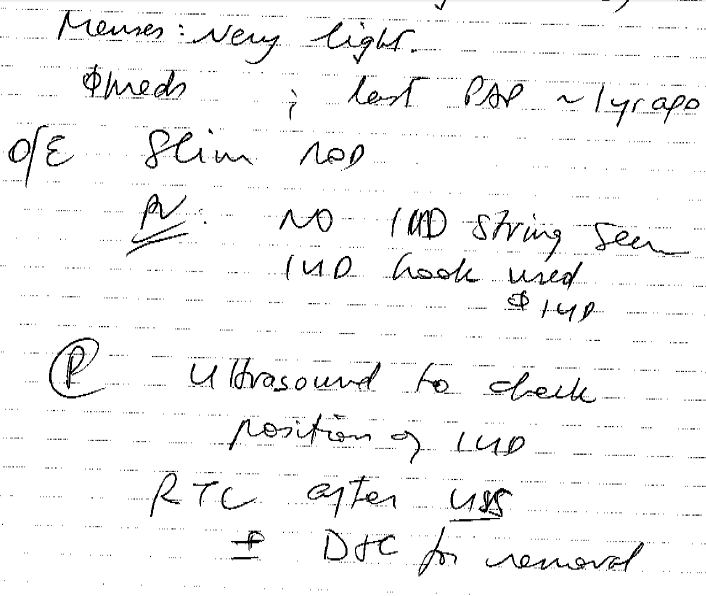 Menses: very light.
∅meds ; last PAP ~1yr ago
O/E Slim NAD
PV: NO IUD string seen
IUD hook used
∅ IUD
Ⓟ Ultrasound to check
position of IUD
RTC after USS
± D&C for removal